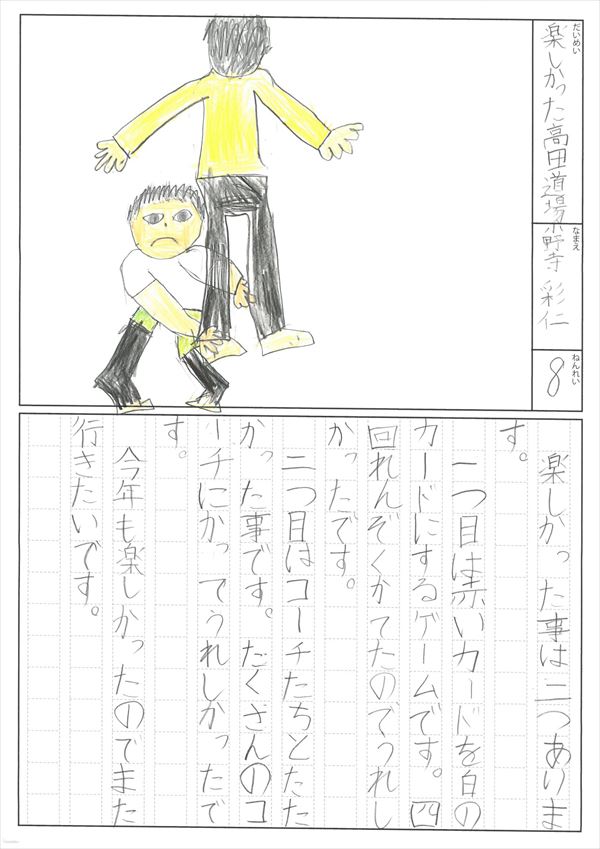 だいめい
楽しかった高田道場
なまえ
野寺 彩仁
ねんれい
8
楽しかった事は二つありま
す。
一つ目は赤いカードを白の
カードにするゲームです。四
回れんぞくかてたのでうれし
かったです。
二つ目はコーチたちとたた
かった事です。たくさんのコ
ーチにかってうれしかったで
す。
今年も楽しかったのでまた
行きたいです。